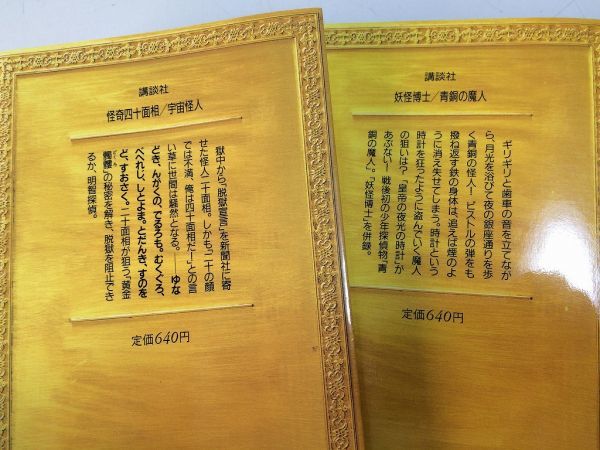 講談社
怪奇四十面相/宇宙怪人
獄中から「脱獄宣言」を新聞社に寄
せた怪人二十面相。しかも「二十の顔
では不満、俺は四十面相だ―」との言
い草に世間は騒然となる。――ゆな
どき、んがくの、でるろも。むくぐろ、
べへれじ、しとよま。とだんき、すのを
ど、すおさく。二十面相が狙う「黄金
髑髏」の秘密を解き、脱獄を阻止でき
るか、明智探偵。
定価640円
講談社
妖怪博士/青銅の魔人
ギリギリと歯車の音を立てなが
ら、月光を浴びて夜の銀座通りを歩
く青銅の怪人! ピストルの弾をも
撥ね返す鉄の身体は、追えば煙のよ
うに消え失せてしまう。時計という
時計を狂ったように盗んでいく魔人
の狙いは?「皇帝の夜光の時計」が
あぶない! 戦後初の少年探偵物「青
銅の魔人」。「妖怪博士」を併録。
定価640円